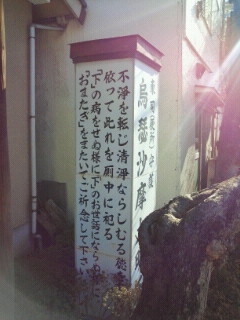 東司便所守護
烏瑟沙摩明
不淨を転じ清淨ならしむる徳
依って此れを厠中に祀る
「下」の病をせぬ様に「下」のお世話にならぬ様に
「おまたぎ」をまたいでご祈念して下さい